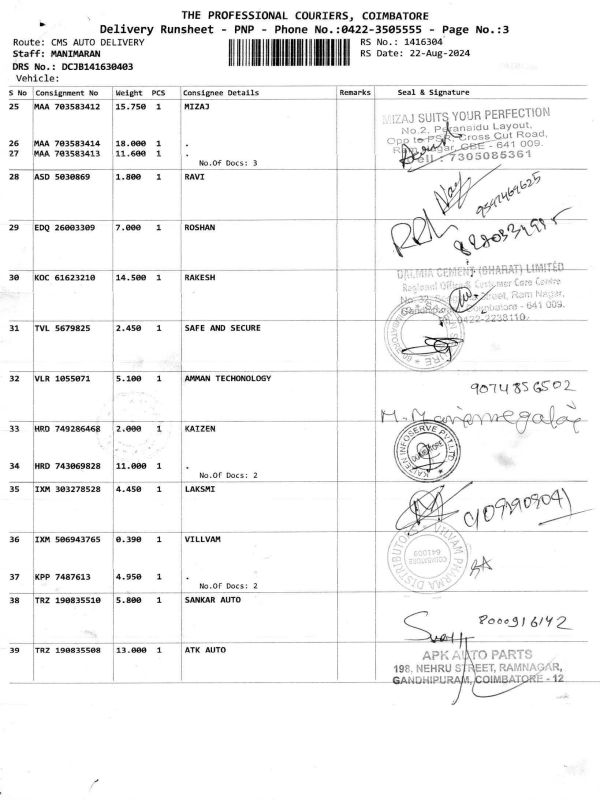 THE PROFESSIONAL COURIERS, COIMBATORE
Delivery Runsheet - PNP - Phone No.:0422-3505555 - Page No.:3
Route: CMS AUTO DELIVERY RS No.: 1416304
Staff: MANIMARAN RS Date: 22-Aug-2024
DRS No.: DCJB141630403
Vehicle:
S No Consignment No Weight PCS Consignee Details Remarks Seal & Signature
25 MAA 703583412 15.750 1 MIZAJ
MIZAJ SUITS YOUR PERFECTION
No.2, Peranaidu Layout,
Opp to PSR, Cross Cut Road,
Ram Nagar, CBE - 641 009.
Cell : 7305085361
26 MAA 703583414 18.000 1 .
27 MAA 703583413 11.600 1 .
No.Of Docs: 3
28 ASD 5030869 1.800 1 RAVI
9597469625
29 EDQ 26003309 7.000 1 ROSHAN
30 KOC 61623210 14.500 1 RAKESH
DALMIA CEMENT (BHARAT) LIMITED
Regional Office & Customer Care Centre
Street, Ram Nagar,
Coimbatore - 641 009.
0422-2238110
31 TVL 5679825 2.450 1 SAFE AND SECURE
32 VLR 1055071 5.100 1 AMMAN TECHONOLOGY
9074856502
33 HRD 749286468 2.000 1 KAIZEN
KAIZEN INFOSERVE PVT.LTD
COIMBATORE
34 HRD 743069828 11.000 1 .
No.Of Docs: 2
35 IXM 303278528 4.450 1 LAKSMI
36 IXM 506943765 0.390 1 VILLVAM
VILVAM PHARMA DISTRIBUTORS
COIMBATORE
641009
37 KPP 7487613 4.950 1 .
No.Of Docs: 2
38 TRZ 190835510 5.800 1 SANKAR AUTO
8000916142
39 TRZ 190835508 13.000 1 ATK AUTO
APK AUTO PARTS
198, NEHRU STREET, RAMNAGAR,
GANDHIPURAM, COIMBATORE - 12